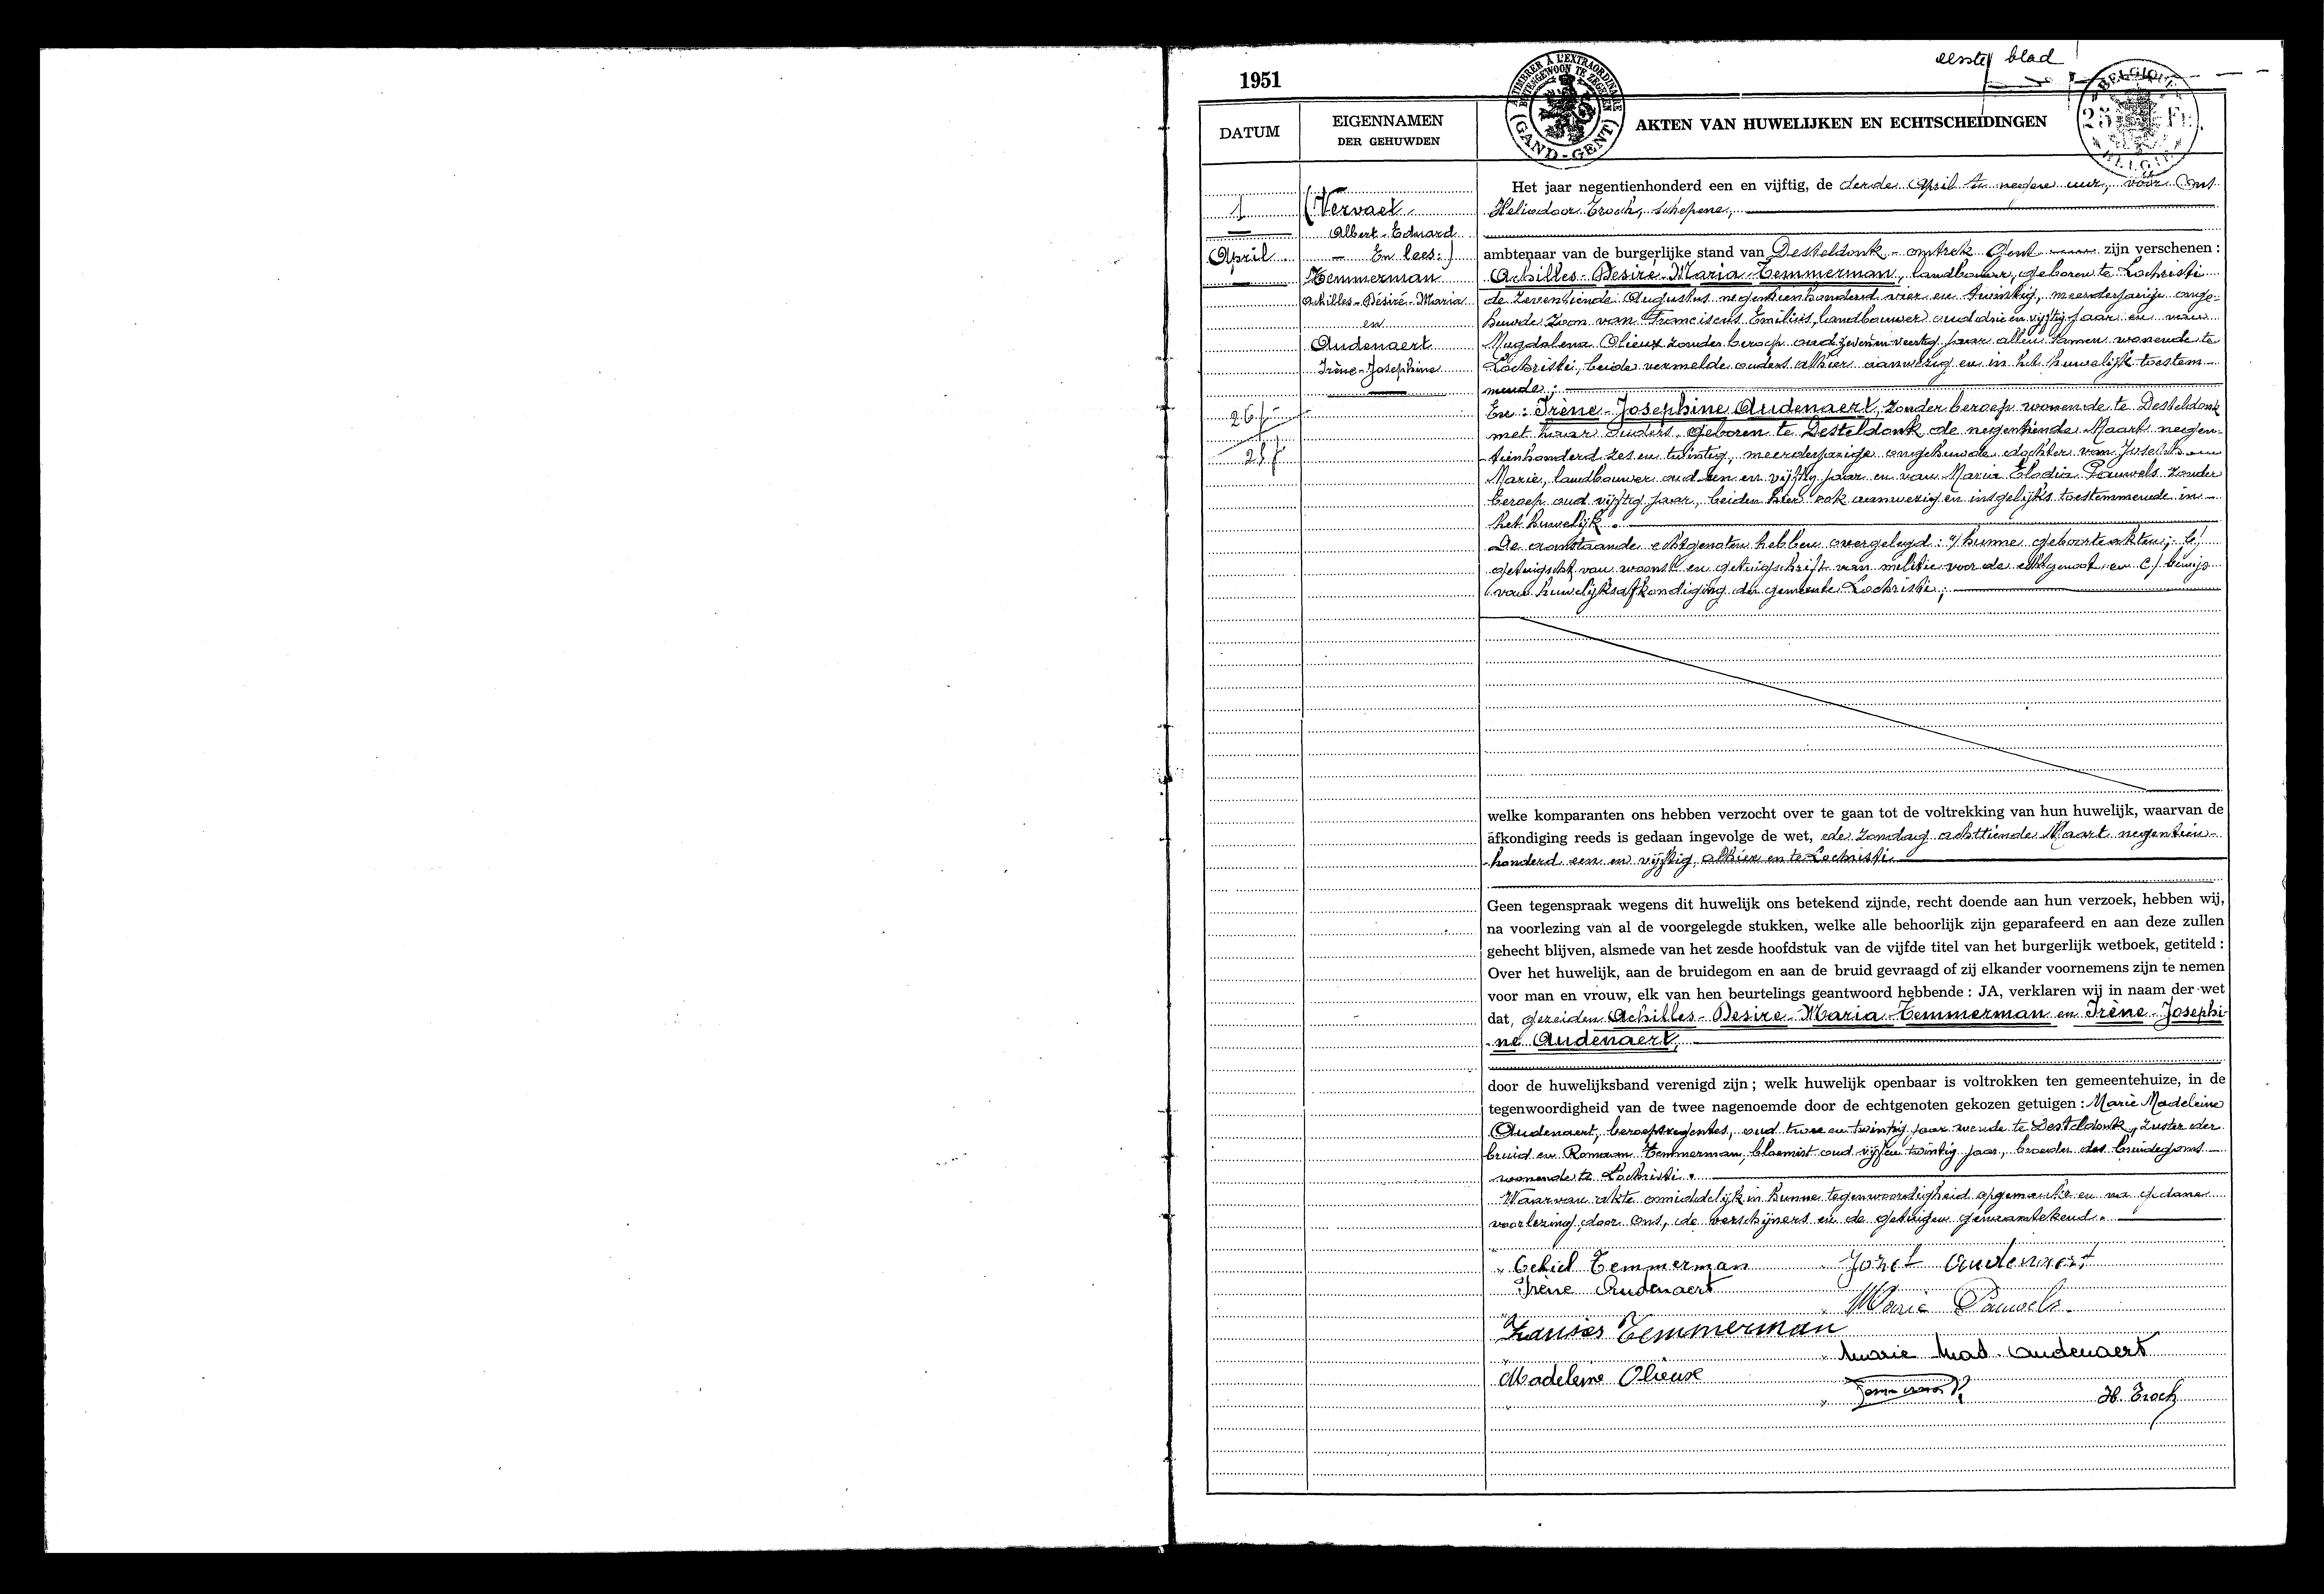 eerste blad
1951
A TIMBRER A L'EXTRAORDINAIRE
BUITENGEWOON TE ZEGELEN
(GAND-GENT)
BELGIQUE
25 Fr.
BELGIE
DATUM
EIGENNAMEN
DER GEHUWDEN
AKTEN VAN HUWELIJKEN EN ECHTSCHEIDINGEN
1
April
26/
25/
(Vervaet
Albert-Eduard
- En lees:)
Temmerman
Achilles-Désiré-Maria
en
Audenaert
Irène-Josephine
Het jaar negentienhonderd een en vijftig, de derde April te negen uur, vóór Ons
Heliodoor Troch, Schepene,
ambtenaar van de burgerlijke stand van Desteldonk - omtrek Gent zijn verschenen :
Achilles-Desiré-Maria-Temmerman, landbouwer, geboren te Lochristi
de zeventiende Augustus negentienhonderd vier en twintig, meerderjarige onge-
huwde zoon van Franciscus Emilius, landbouwer oud drie en vijftig jaar en van
Magdalena Olieux zonder beroep oud zeven en veertig jaar allen samen wonende te
Lochristi, beide vermelde ouders alhier aanwezig en in het huwelijk toestem-
mende;
En: Irène-Josephine Audenaert, zonder beroep wonende te Desteldonk
met haar ouders, geboren te Desteldonk de negentiende Maart negen-
tienhonderd zes en twintig, meerderjarige ongehuwde dochter van Joseph
Marie, landbouwer oud een en vijftig jaar en van Maria Elodia Pauwels zonder
beroep oud vijftig jaar, beiden hier ook aanwezig en insgelijks toestemmende in
het huwelijk.
De aanstaande echtgenoten hebben overgelegd: a/ hunne geboorteakten; b/
getuigschrift van woonst en getuigschrift van militie voor de echtgenoot en c/ bewijs
van huwelijksafkondiging der gemeente Lochristi;
welke komparanten ons hebben verzocht over te gaan tot de voltrekking van hun huwelijk, waarvan de
afkondiging reeds is gedaan ingevolge de wet, de zondag achttiende Maart negentien-
honderd een en vijftig, alhier en te Lochristi
Geen tegenspraak wegens dit huwelijk ons betekend zijnde, recht doende aan hun verzoek, hebben wij,
na voorlezing van al de voorgelegde stukken, welke alle behoorlijk zijn geparafeerd en aan deze zullen
gehecht blijven, alsmede van het zesde hoofdstuk van de vijfde titel van het burgerlijk wetboek, getiteld :
Over het huwelijk, aan de bruidegom en aan de bruid gevraagd of zij elkander voornemens zijn te nemen
voor man en vrouw, elk van hen beurtelings geantwoord hebbende : JA, verklaren wij in naam der wet
dat, gezeiden Achilles-Desire-Maria-Temmerman en Irène-Josephi-
ne Audenaert,
door de huwelijksband verenigd zijn ; welk huwelijk openbaar is voltrokken ten gemeentehuize, in de
tegenwoordigheid van de twee nagenoemde door de echtgenoten gekozen getuigen : Marie Madeleine
Audenaert, beroepsregentes, oud twee en twintig jaar wende te Desteldonk, zuster der
bruid en Romaan Temmerman, bloemist oud vijf en twintig jaar, broeder des bruidegoms
wonende te Lochristi.
Waarvan akte onmiddelijk in hunne tegenwoordigheid opgemaakt en na gedane
voorlezing door ons, de verschijners en de getuigen genaamtekend.
Achiel Temmerman
Jozef Audenaert
Irène Audenaert
Marie Pauwels
Fransies Temmerman
Marie Mad. Audenaert
Madeleine Olieux
Temmerman R.
H. Troch